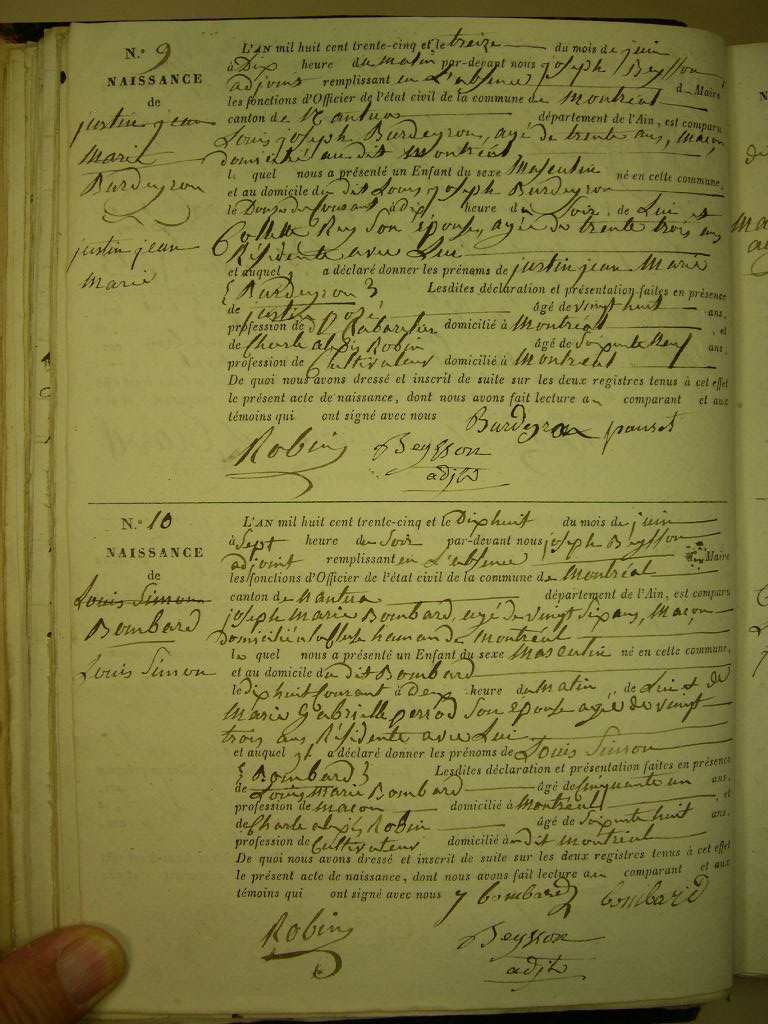 N.° 9
NAISSANCE
de
justin jean
Marie
Burdeyron
justin jean
marie
L'AN mil huit cent trente-cinq et le treize du mois de juin
à Dix heure du Matin par-devant nous joseph Beysson
adjoint remplissant en L'absence du Maire
les fonctions d'Officier de l'état civil de la commune de Montréal
canton de Nantua département de l'Ain, est comparu
Louis joseph Burdeyron, agé de trente ans, Maçon,
domicilié au dit Montréal
le quel nous a présenté un Enfant du sexe Masculin né en cette commune,
et au domicile du dit Louis joseph Burdeyron
le Douze du Courant à dix heure du Soir, de Lui et
Collette Rey Son épouse, agée de trente trois ans
Résidente avec Lui
et auquel il a déclaré donner les prénoms de justin jean Marie
{ Burdeyron } Lesdites déclaration et présentation faites en présence
de justin âgé de vingt huit ans,
profession de domicilié à Montréal, et
de Charle alexis Robin âgé de Soixante Neuf ans,
profession de Cultivateur domicilié à Montréal
De quoi nous avons dressé et inscrit de suite sur les deux registres tenus à cet effet
le présent acte de naissance, dont nous avons fait lecture au comparant et aux
témoins qui ont signé avec nous Burdeyron
Robin Beysson
adjt
N.° 10
NAISSANCE
de
Louis Simon
Bombard
Louis Simon
L'AN mil huit cent trente-cinq et le Dix huit du mois de juin
à Sept heure du Soir par-devant nous joseph Beysson
adjoint remplissant en L'absence Maire
les fonctions d'Officier de l'état civil de la commune de Montréal
canton de Nantua département de l'Ain, est comparu
joseph Marie Bombard, agé de vingt Six ans, Maçon
Domicilié hameau de Montréal
le quel nous a présenté un Enfant du sexe Masculin né en cette commune,
et au domicile du dit Bombard
le dix huit Courant à Deux heure du Matin, de Lui et de
Marie Gabrielle perrod Son épouse agée de vingt
trois ans Résidente avec Lui
et auquel il a déclaré donner les prénoms de Louis Simon
{ Bombard } Lesdites déclaration et présentation faites en présence
de Louis Marie Bombard âgé de Cinquante un ans,
profession de Maçon domicilié à Montréal, et
de Charle alexis Robin âgé de Soixante huit ans,
profession de Cultivateur domicilié au dit Montréal
De quoi nous avons dressé et inscrit de suite sur les deux registres tenus à cet effet
le présent acte de naissance, dont nous avons fait lecture au comparant et aux
témoins qui ont signé avec nous j bombard bombard
Robin Beysson
adjt